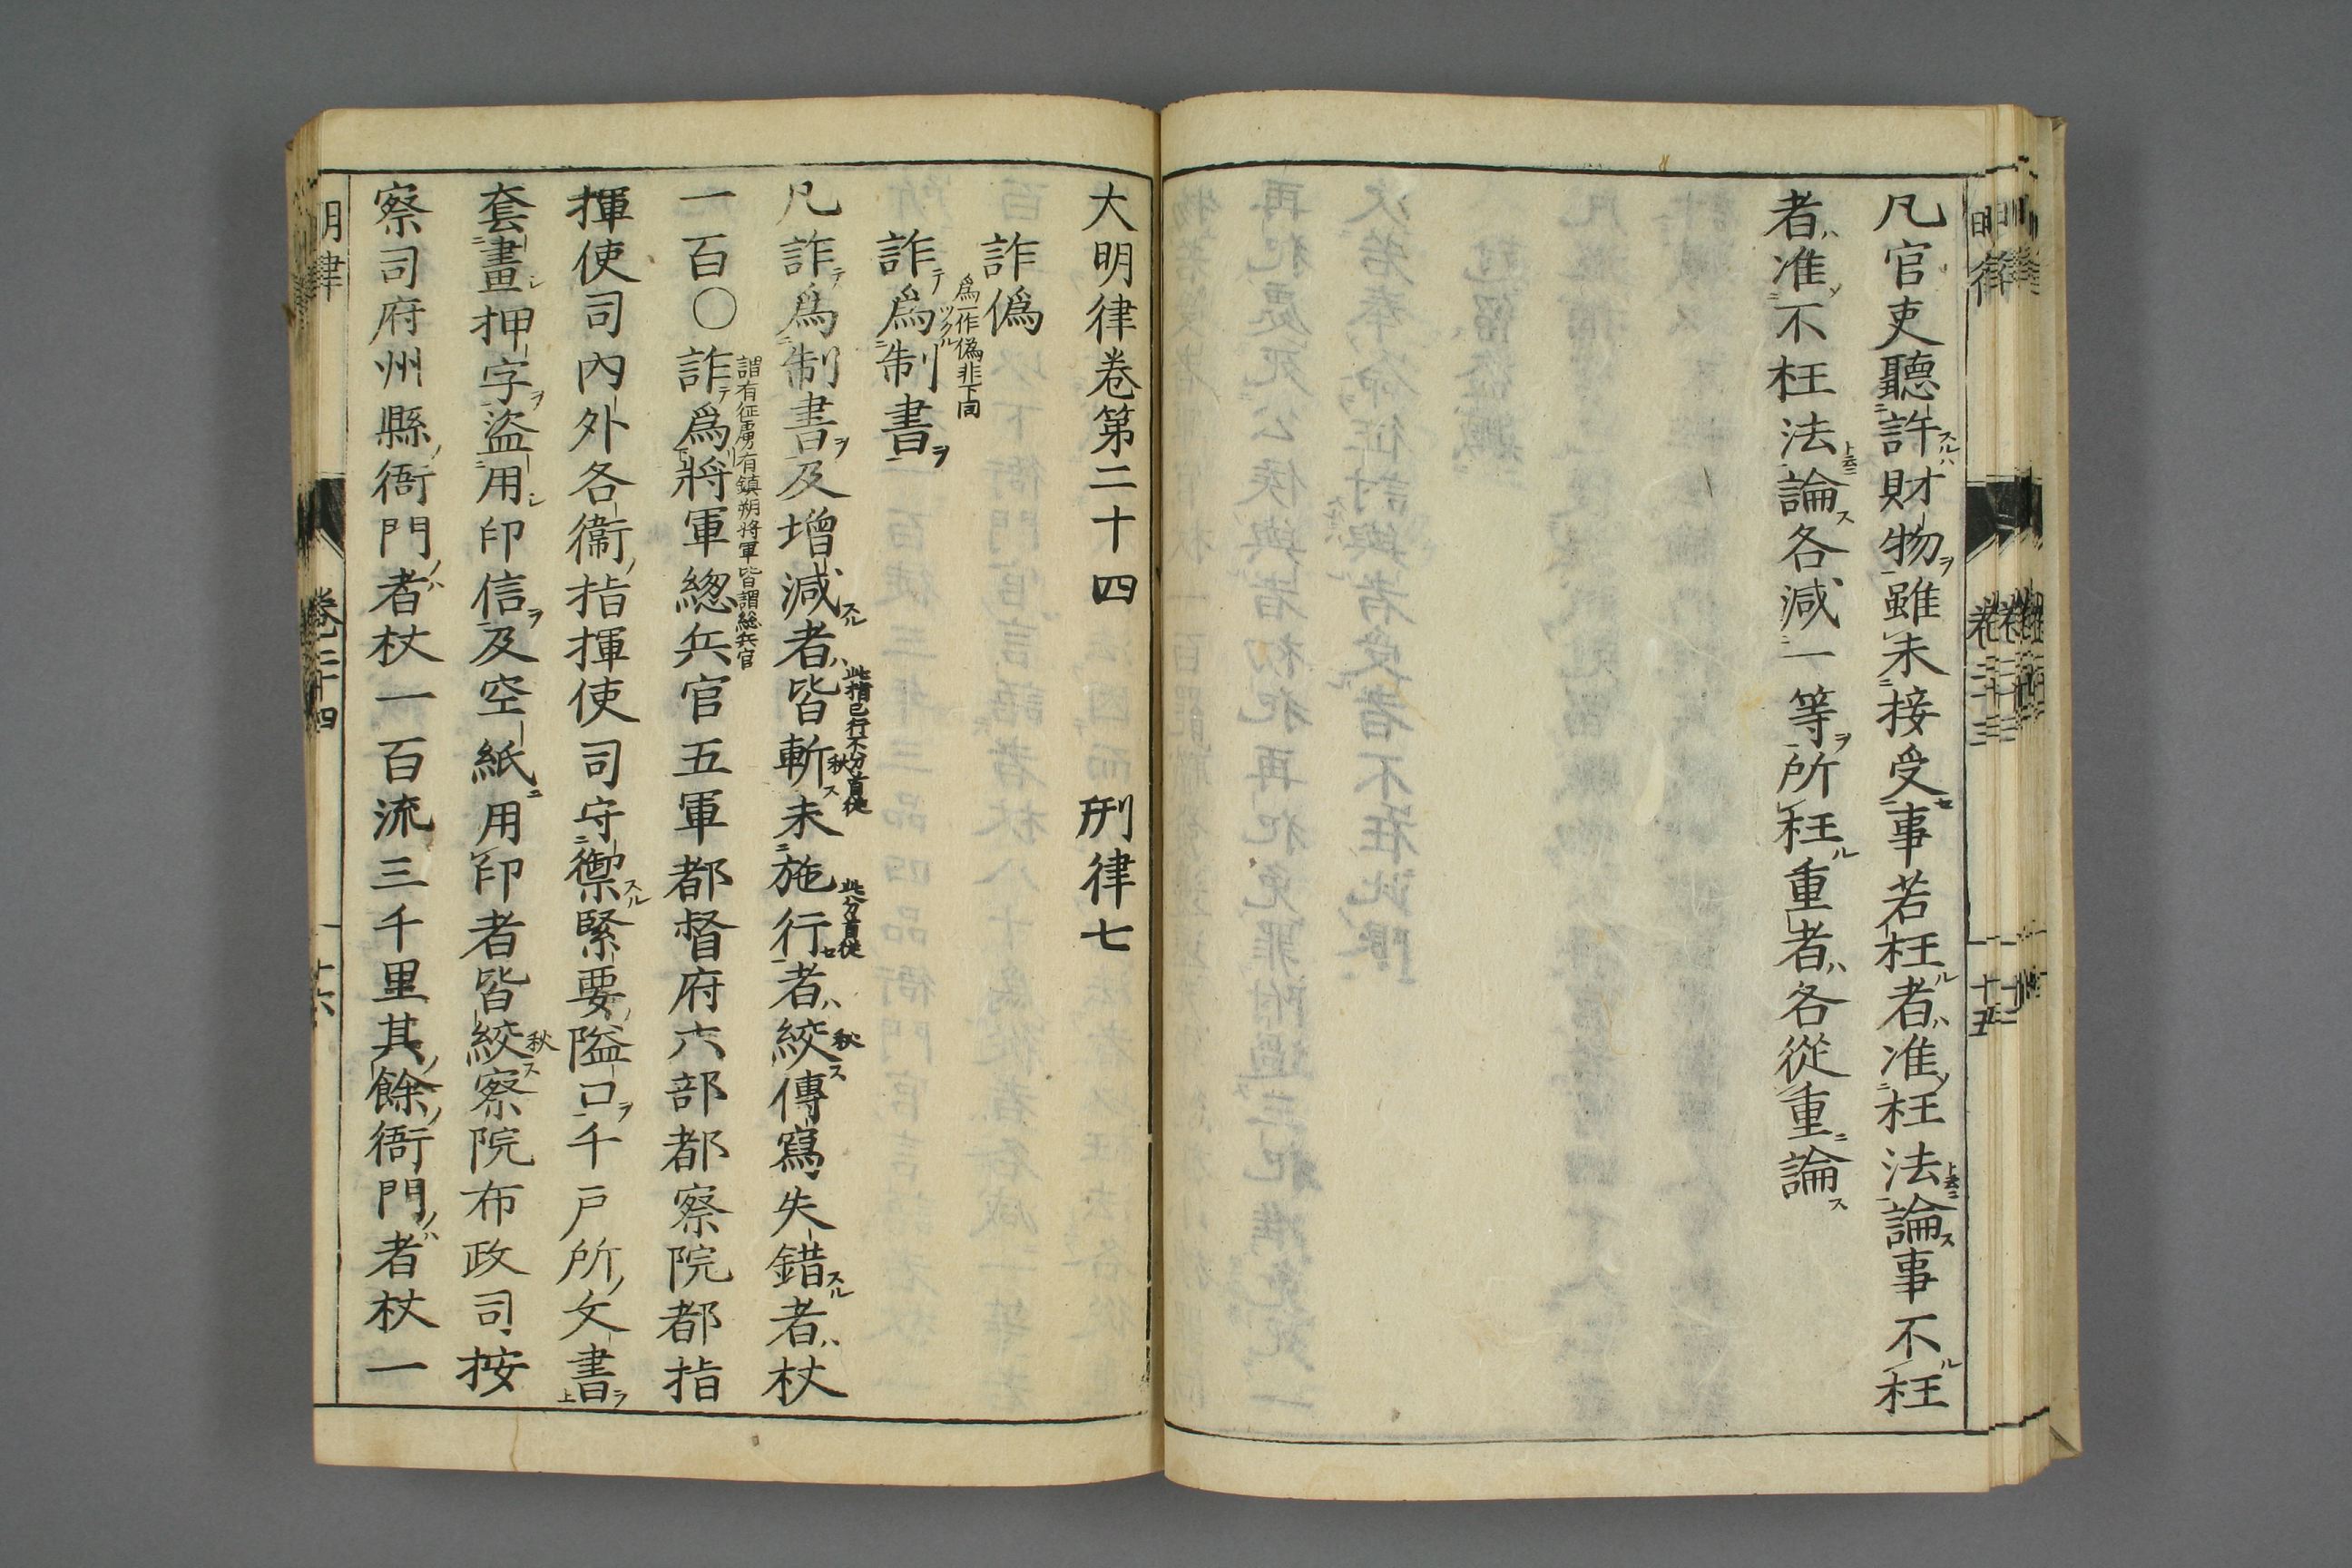 凡官吏聽許財物雖未接受事若枉者准枉法論事不枉
者准不枉法論各減一等所枉重者各從重論
大明律卷第二十四 刑律七
詐偽
爲一作偽非下同
詐爲制書
凡詐爲制書及增減者皆斬未施行者絞傳寫失錯者杖
此指已行不分首從
此分首從
一百〇詐爲將軍總兵官五軍都督府六部都察院都指
謂有征虜有鎮朔將軍皆謂総兵官
揮使司內外各衞指揮使司守禦緊要隘口千戶所文書
套畫押字盜用印信及空紙用印者皆絞察院布政司按
察司府州縣衙門者杖一百流三千里其餘衙門者杖一
明律 卷二十四 十六